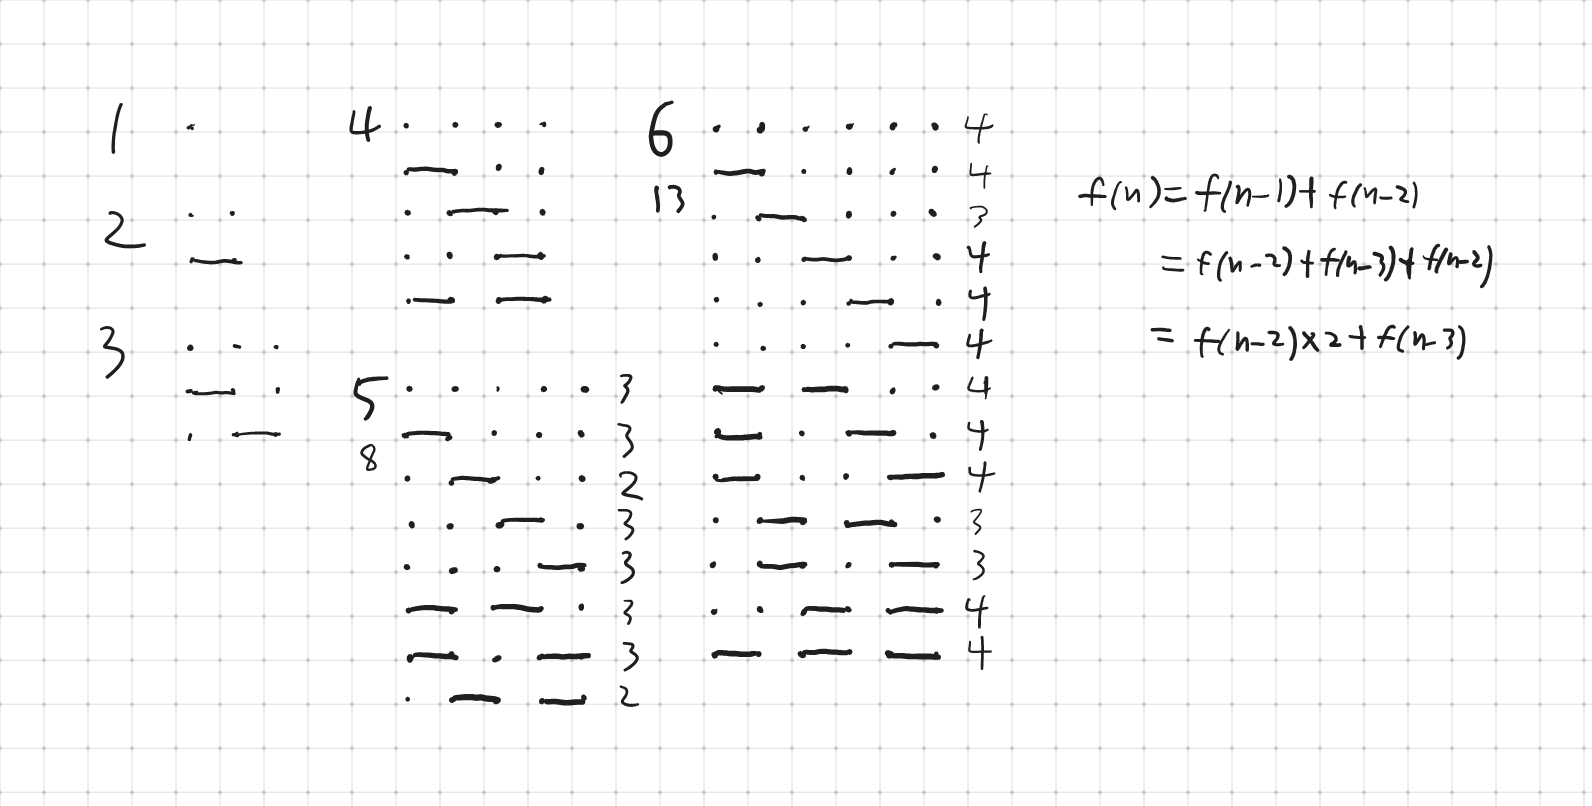 1
2
3
4
5
8
3
3
2
3
3
3
3
2
6
13
4
4
3
4
4
4
4
4
4
3
3
4
4
f(n)=f(n-1)+f(n-2)
=f(n-2)+f(n-3)+f(n-2)
=f(n-2)×2+f(n-3)